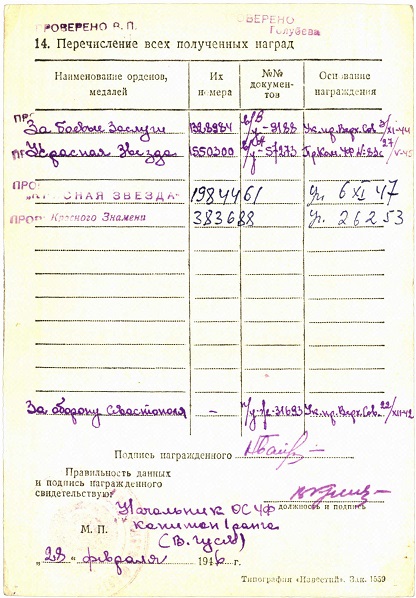 ПРОВЕРЕНО В. П.
ПРОВЕРЕНО
Голубева
14. Перечисление всех полученных наград
Наименование орденов, медалей
Их номера
№№ документов
Основание награждения
За боевые заслуги
Красная Звезда 550300
КРАСНАЯ ЗВЕЗДА 1984461 Ук. 6 XI 47
Красного Знамени 383688 Ук. 26 2 53
За оборону Севастополя - Ук. пр. Верх. Сов. 22/XII-42
Подпись награжденного
Правильность данных
и подпись награжденного
свидетельствую:
должность и подпись
Начальник ОС ЧФ
М. П. капитан 1 ранга
(В. Гусев)
„28 февраля 1946 г.
Типография «Известий». Зак. 1559